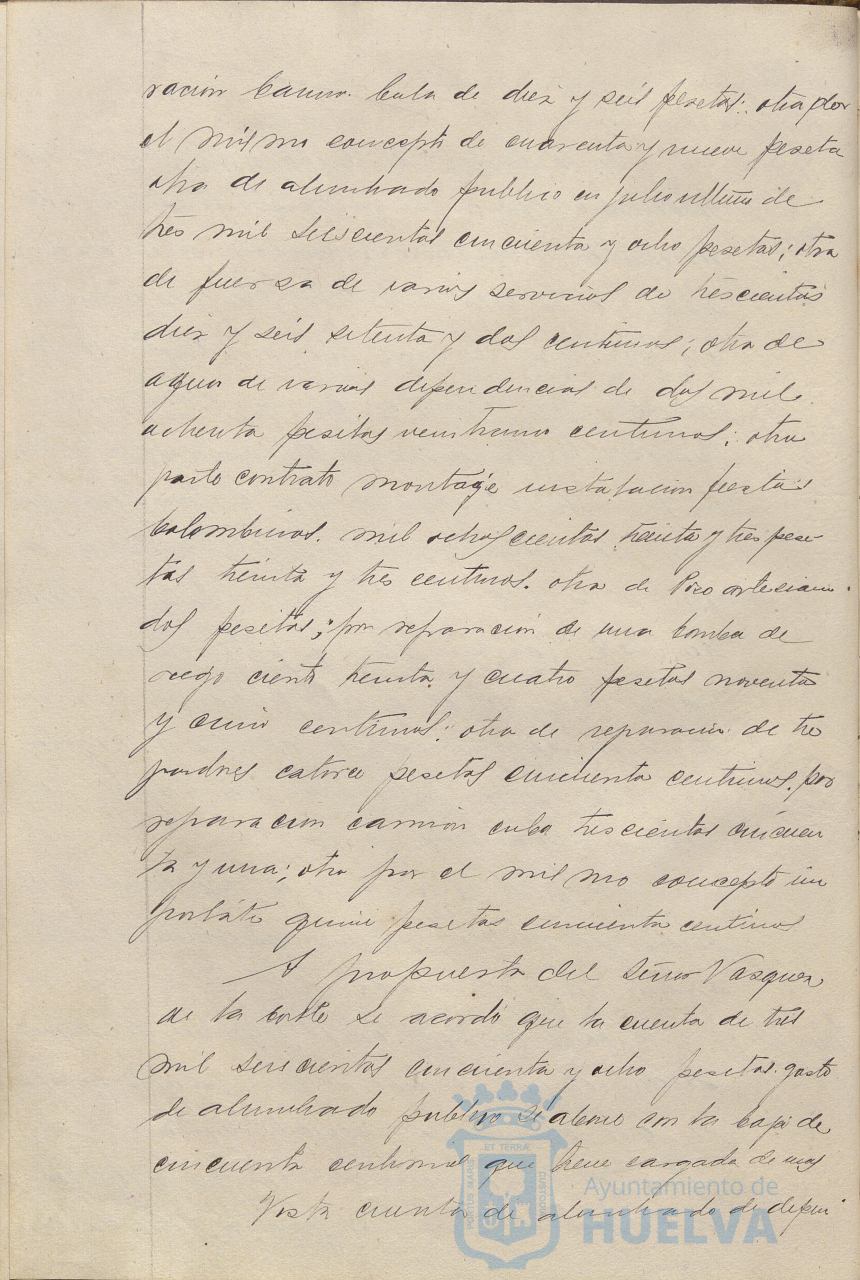 ración Camion Cuba de diez y seis pesetas: otra por
el mismo concepto de cuarenta y nueve peseta
otra de alumbrado publico en julio ultimo de
tres mil seiscientas cincuenta y ocho pesetas; otra
de fuerza de varios servicios de trescientas
diez y seis setenta y dos centimos; otra de
agua de varias dependencias de dos mil
ochenta pesetas veintiuno centimos; otra
parte contrato montage instalacion fiestas
Colombinas. mil ochoscientas treinta y tres pese-
tas treinta y tres centimos. otra de Pozo artesiano
dos pesetas; por reparación de una bomba de
riego ciento treinta y cuatro pesetas noventa
y cinco centimos: otra de reparacion de tre
catorce pesetas cincuenta centimos. por
reparacion camión cuba trescientas cincuen
ta y una; otra por el mismo concepto un
quince pesetas cincuenta centimos
A propuesta del Señor Vazquez
de la Corte se acordó que la cuenta de tres
mil seiscientas cincuenta y ocho pesetas gasto
de alumbrado publico se abone con la baja de
cincuenta centimos que tiene cargada de mas
Vista cuenta de alumbrado de depen
ET TERRAE
PORTUS MARIS
CUSTODIA
Ayuntamiento de
HUELVA